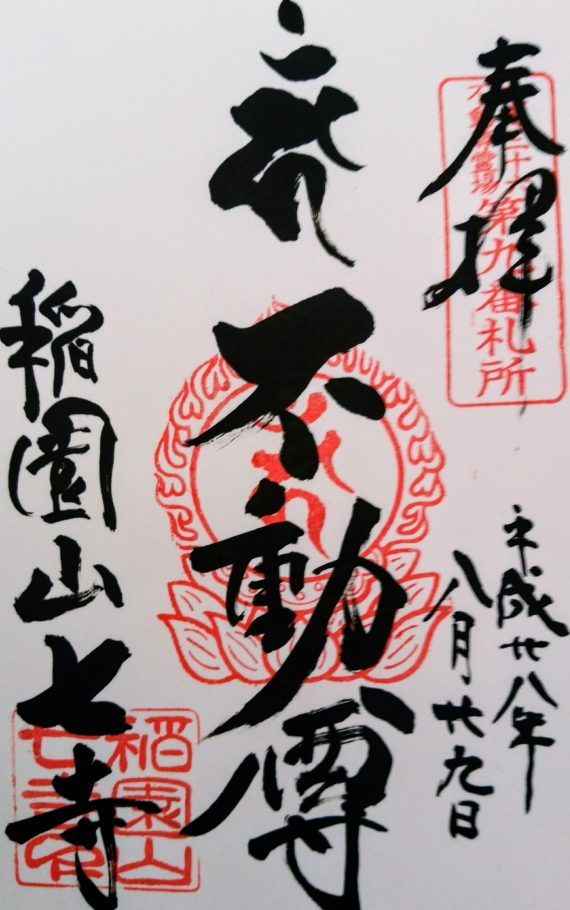 奉拝
第九番札所
平成廿八年
八月廿九日
不動尊
稲園山七寺
稲園山